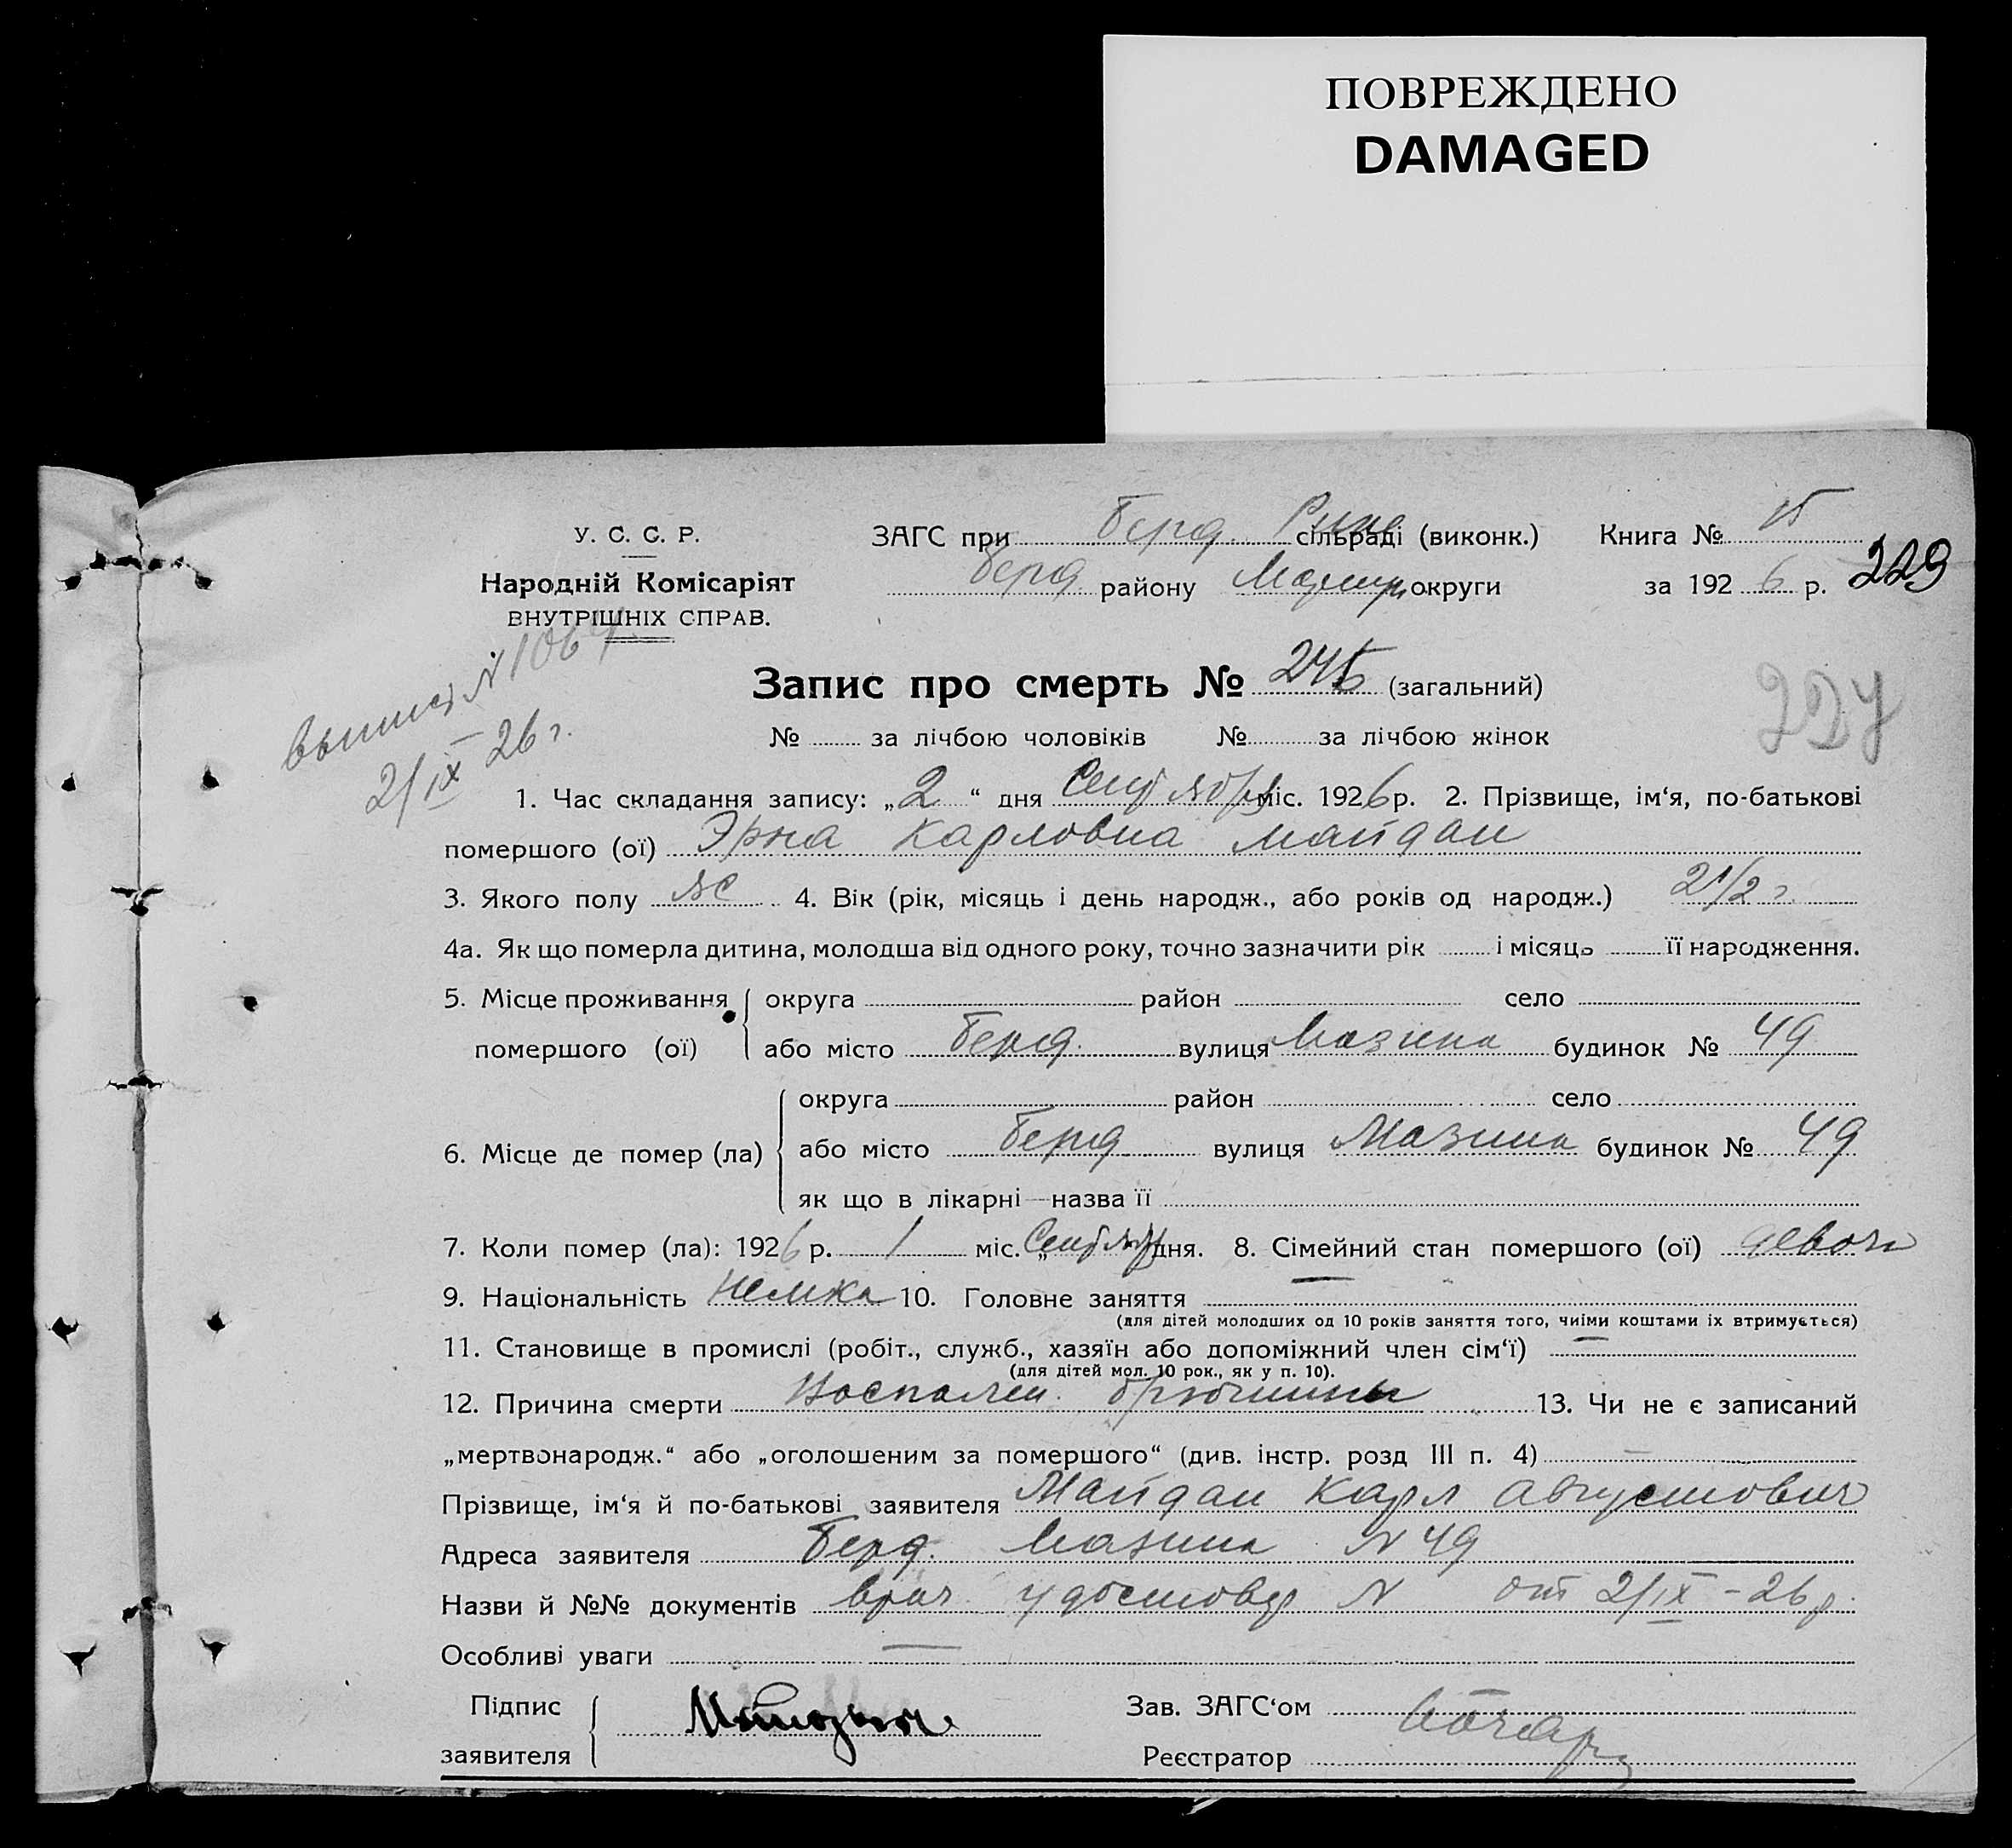 ПОВРЕЖДЕНО
DAMAGED
У. С. С. Р.
Народній Комісаріят
ВНУТРІШНІХ СПРАВ.
ЗАГС при Берд. сільраді (виконк.) Книга № 15
Берд району округи за 1926 р. 229
2/IX 26 г.
Запис про смерть № 245 (загальний)
№ за лічбою чоловіків № за лічбою жінок
1. Час складання запису: „2“ дня Сентября міс. 1926 р. 2. Прізвище, ім‘я, по-батькові
помершого (ої) Эрна Карловна Майдан
3. Якого полу ж 4. Вік (рік, місяць і день народж., або років од народж.) 2 1/2 г.
4а. Як що померла дитина, молодша від одного року, точно зазначити рік і місяць її народження.
5. Місце проживання округа район село
помершого (ої) або місто Берд. вулиця Мазина будинок № 49
округа район село
6. Місце де помер (ла) або місто Берд вулиця Мазина будинок № 49
як що в лікарні—назва її
7. Коли помер (ла): 1926 р. 1 міс. „Сентября дня. 8. Сімейний стан помершого (ої) девочк
9. Національність немка 10. Головне заняття —
(для дітей молодших од 10 років заняття того, чиїми коштами їх втримується)
11. Становище в промислі (робіт., служб., хазяїн або допоміжний член сім‘ї) —
(для дітей мол. 10 рок., як у п. 10).
12. Причина смерти Воспален. брюшины 13. Чи не є записаний
„мертвонародж.“ або „оголошеним за помершого“ (див. інстр. розд III п. 4) —
Прізвище, ім‘я й по-батькові заявителя Майдан Карл Августович
Адреса заявителя Берд. Мазина N 49
Назви й №№ документів врач. удостовер N от 2/IX - 26 р.
Особливі уваги —
Підпис Зав. ЗАГС‘ом
заявителя Реєстратор